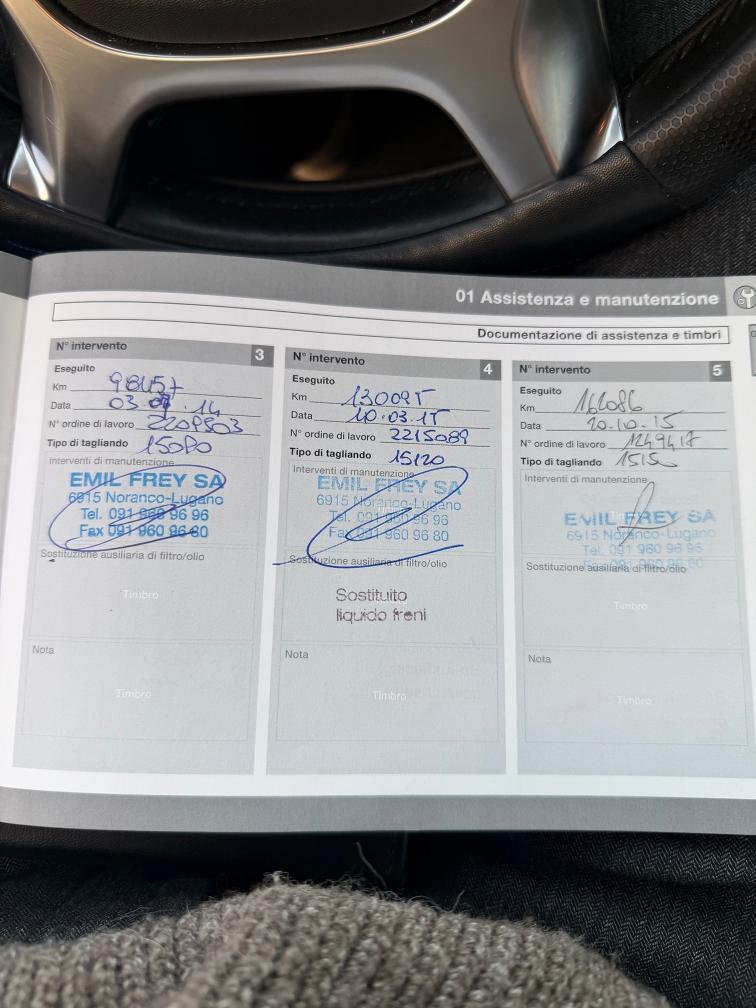 01 Assistenza e manutenzione
Documentazione di assistenza e timbri
N° intervento 3
Eseguito
Km 98457
Data 03.07.14
N° ordine di lavoro 2209803
Tipo di tagliando 15090
Interventi di manutenzione
EMIL FREY SA
6915 Noranco-Lugano
Tel. 091 960 96 96
Fax 091 960 96 80
Sostituzione ausiliaria di filtro/olio
Timbro
Nota
Timbro
N° intervento 4
Eseguito
Km 130095
Data 10.03.15
N° ordine di lavoro 2215089
Tipo di tagliando 15120
Interventi di manutenzione
EMIL FREY SA
6915 Noranco-Lugano
Tel. 091 960 96 96
Fax 091 960 96 80
Sostituzione ausiliaria di filtro/olio
Sostituito
liquido freni
Nota
Timbro
N° intervento 5
Eseguito
Km 166086
Data 20.10.15
N° ordine di lavoro 1249417
Tipo di tagliando
Interventi di manutenzione
EMIL FREY SA
6915 Noranco-Lugano
Tel. 091 960 96 96
Sostituzione ausiliaria di filtro/olio
Timbro
Nota
Timbro